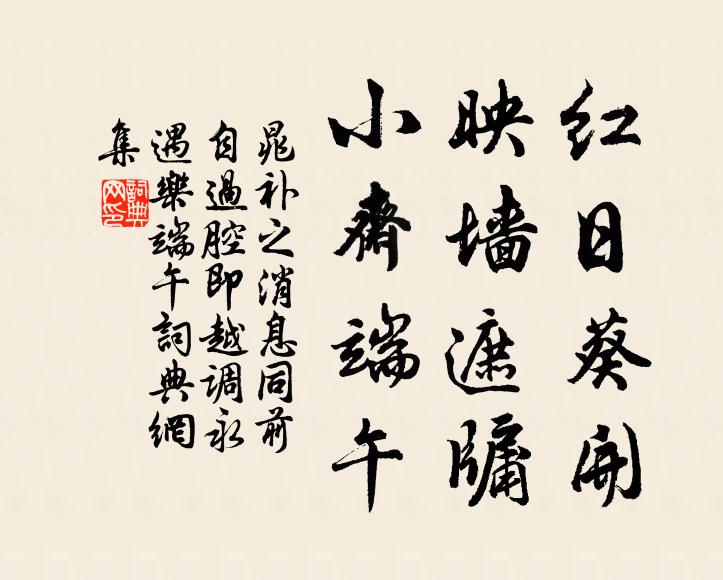 红日葵開
映墙遮牖
小齋端午
晁补之消息同前
自過腔即越調永
遇樂端午詞典網
集
詞典网印